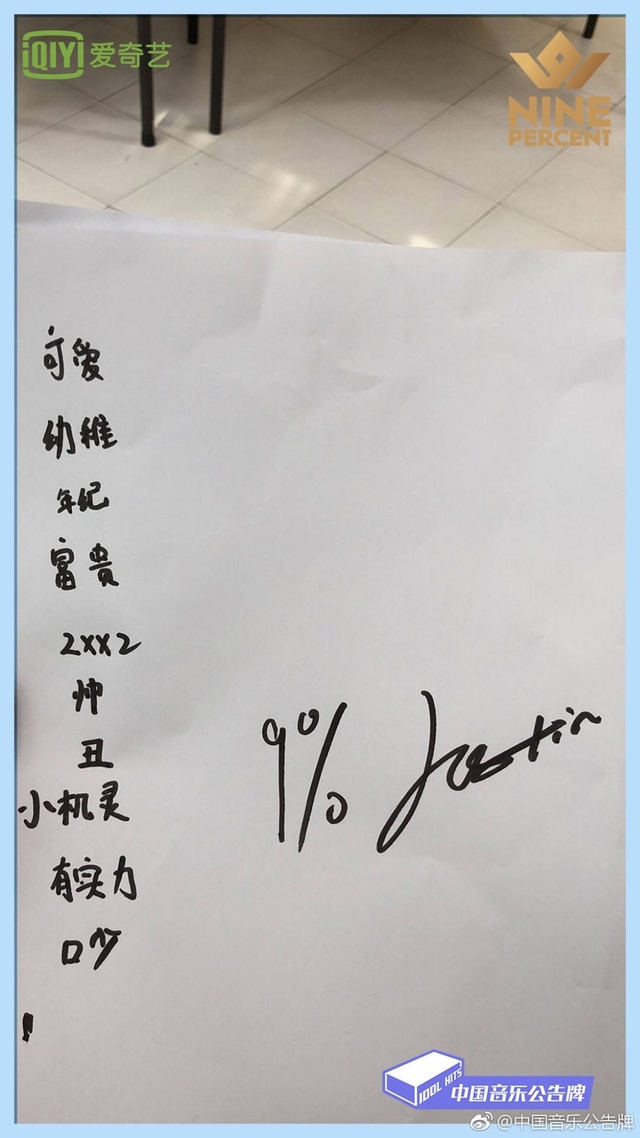 iQIYI 爱奇艺
NINE
PERCENT
可爱
幼稚
年纪
富贵
2xx2
帅
丑
小机灵
有实力
吵
9% Justin
IDOL HITS
中国音乐公告牌
@中国音乐公告牌